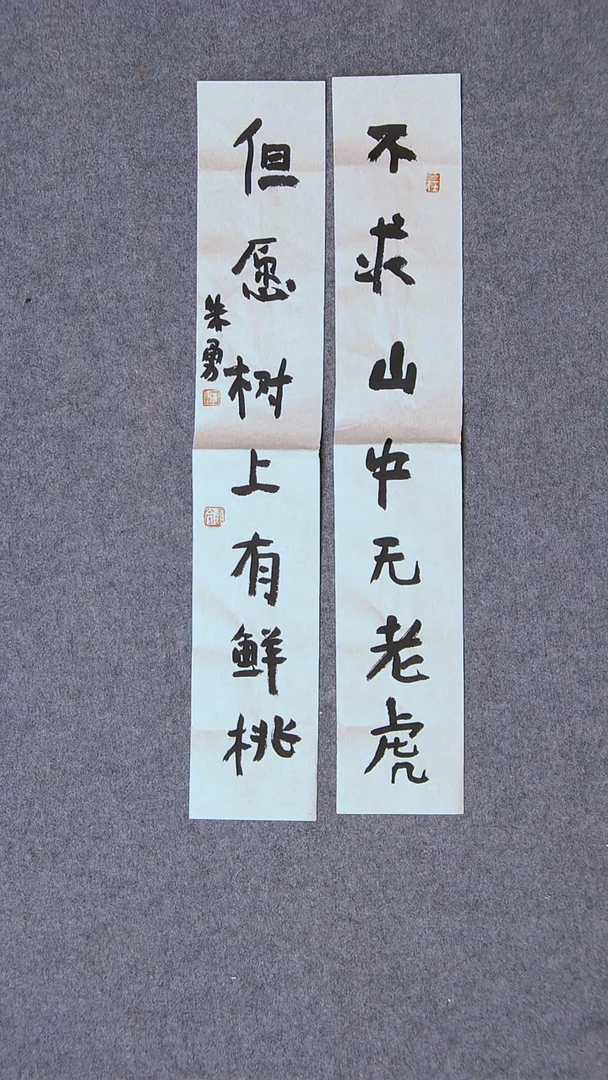 不求山中无老虎
但愿树上有鲜桃
朱勇